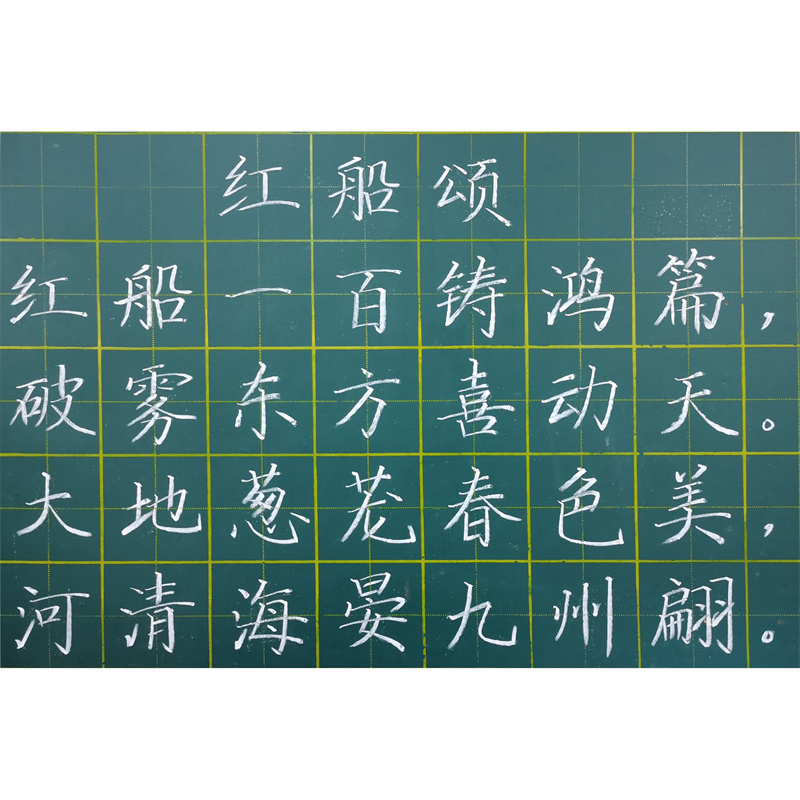 红船颂
红船一百铸鸿篇，
破雾东方喜动天。
大地葱茏春色美，
河清海晏九州翩。